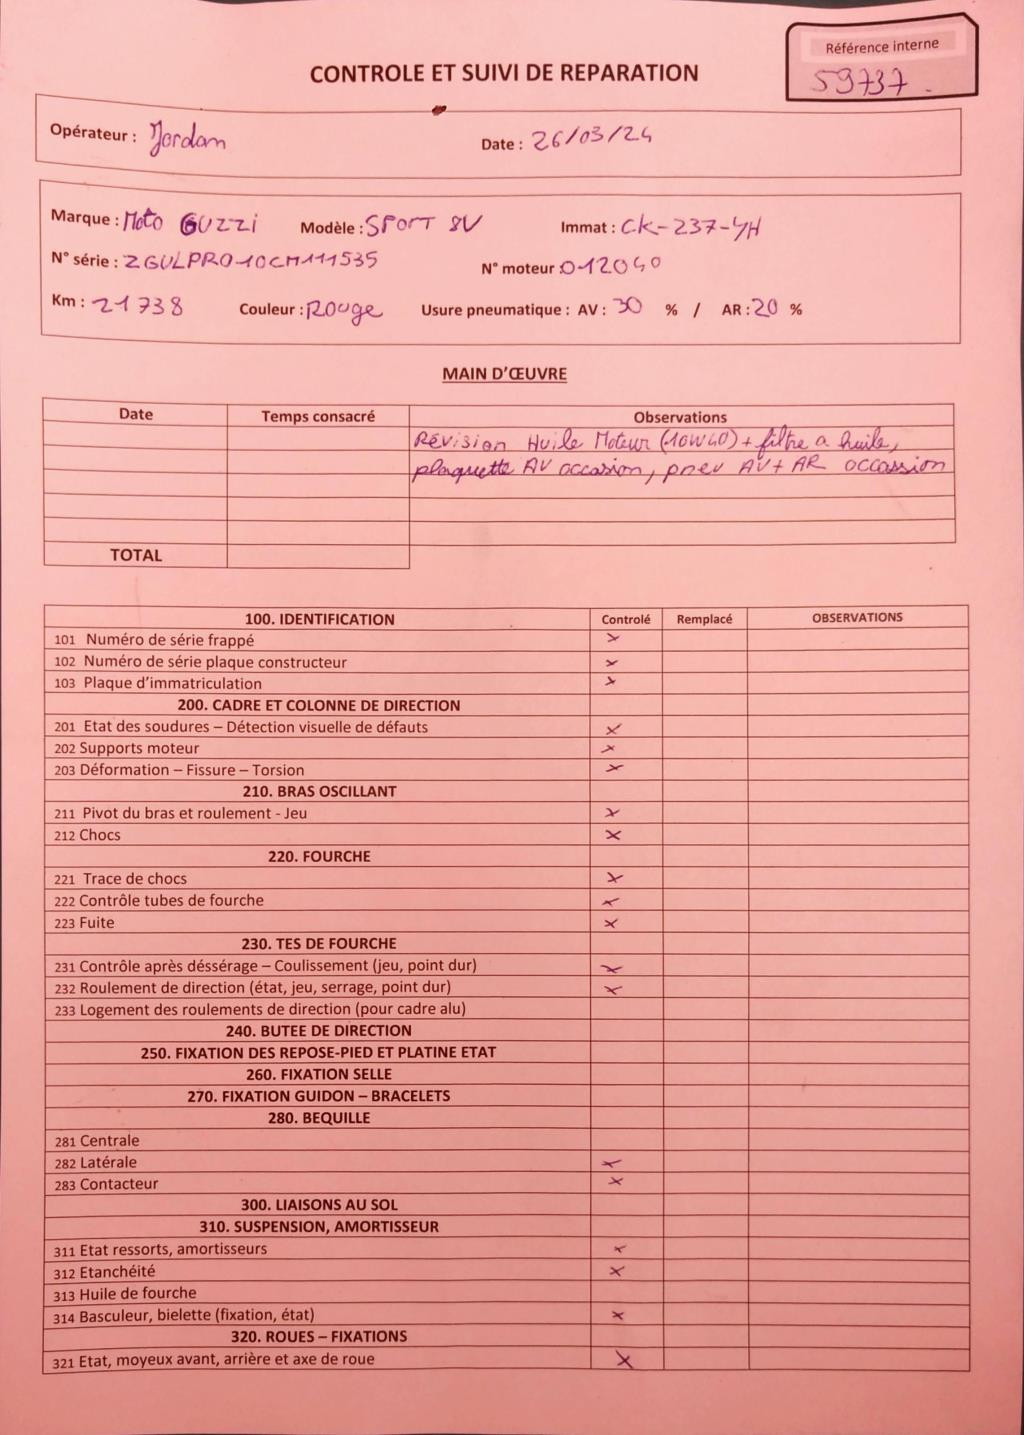 Référence interne
59737.
CONTROLE ET SUIVI DE REPARATION
Opérateur : Jordan Date : 26/03/24
Marque : Moto GUZZI Modèle : SPORT 8V Immat : CK-237-YH
N° série : ZGULPR010CM111535 N° moteur : 012040
Km : 21738 Couleur : Rouge Usure pneumatique : AV : 30 % / AR : 20 %
MAIN D'ŒUVRE
Date Temps consacré Observations
Révision Huile Moteur (10W40) + filtre a huile,
plaquette AV occasion, pneu AV + AR occassion
TOTAL
100. IDENTIFICATION Controlé Remplacé OBSERVATIONS
101 Numéro de série frappé x
102 Numéro de série plaque constructeur x
103 Plaque d'immatriculation x
200. CADRE ET COLONNE DE DIRECTION
201 Etat des soudures – Détection visuelle de défauts x
202 Supports moteur x
203 Déformation – Fissure – Torsion x
210. BRAS OSCILLANT
211 Pivot du bras et roulement - Jeu x
212 Chocs x
220. FOURCHE
221 Trace de chocs x
222 Contrôle tubes de fourche x
223 Fuite x
230. TES DE FOURCHE
231 Contrôle après déssérage – Coulissement (jeu, point dur) x
232 Roulement de direction (état, jeu, serrage, point dur) x
233 Logement des roulements de direction (pour cadre alu)
240. BUTEE DE DIRECTION
250. FIXATION DES REPOSE-PIED ET PLATINE ETAT
260. FIXATION SELLE
270. FIXATION GUIDON – BRACELETS
280. BEQUILLE
281 Centrale
282 Latérale x
283 Contacteur x
300. LIAISONS AU SOL
310. SUSPENSION, AMORTISSEUR
311 Etat ressorts, amortisseurs x
312 Etanchéité x
313 Huile de fourche
314 Basculeur, bielette (fixation, état) x
320. ROUES – FIXATIONS
321 Etat, moyeux avant, arrière et axe de roue x